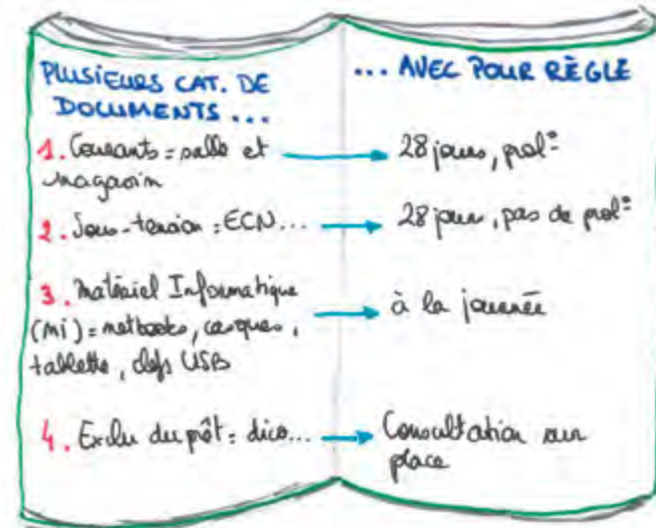 PLUSIEURS CAT. DE
DOCUMENTS ...
1. Courants = salle et
magasin
2. Sous-tension = ECN...
3. Matériel Informatique
(MI) = netbooks, casques,
tablette, clefs USB
4. Exclu du prêt = dico...
... AVEC POUR RÈGLE
28 jours, prol°
28 jours, pas de prol°
à la journée
Consultation sur
place